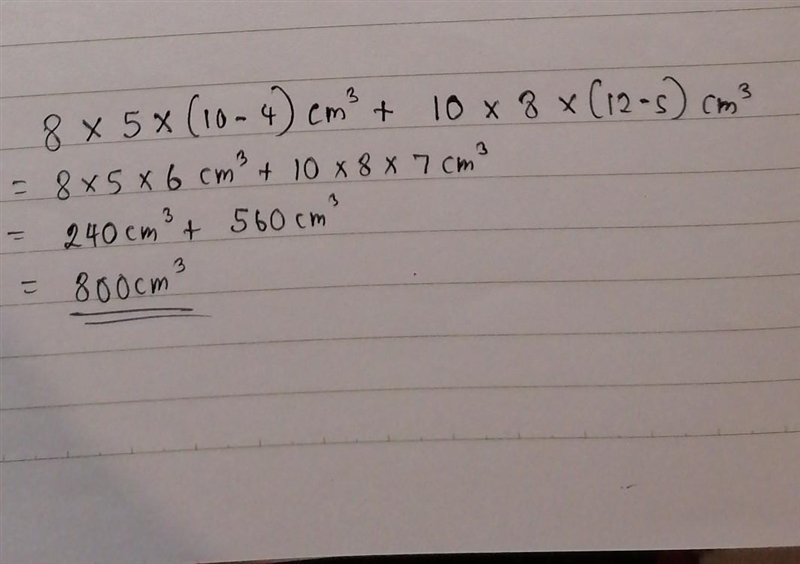 8 × 5 × (10 - 4) cm³ + 10 × 8 × (12 - 5) cm³
= 8 × 5 × 6 cm³ + 10 × 8 × 7 cm³
= 240 cm³ + 560 cm³
= 800 cm³